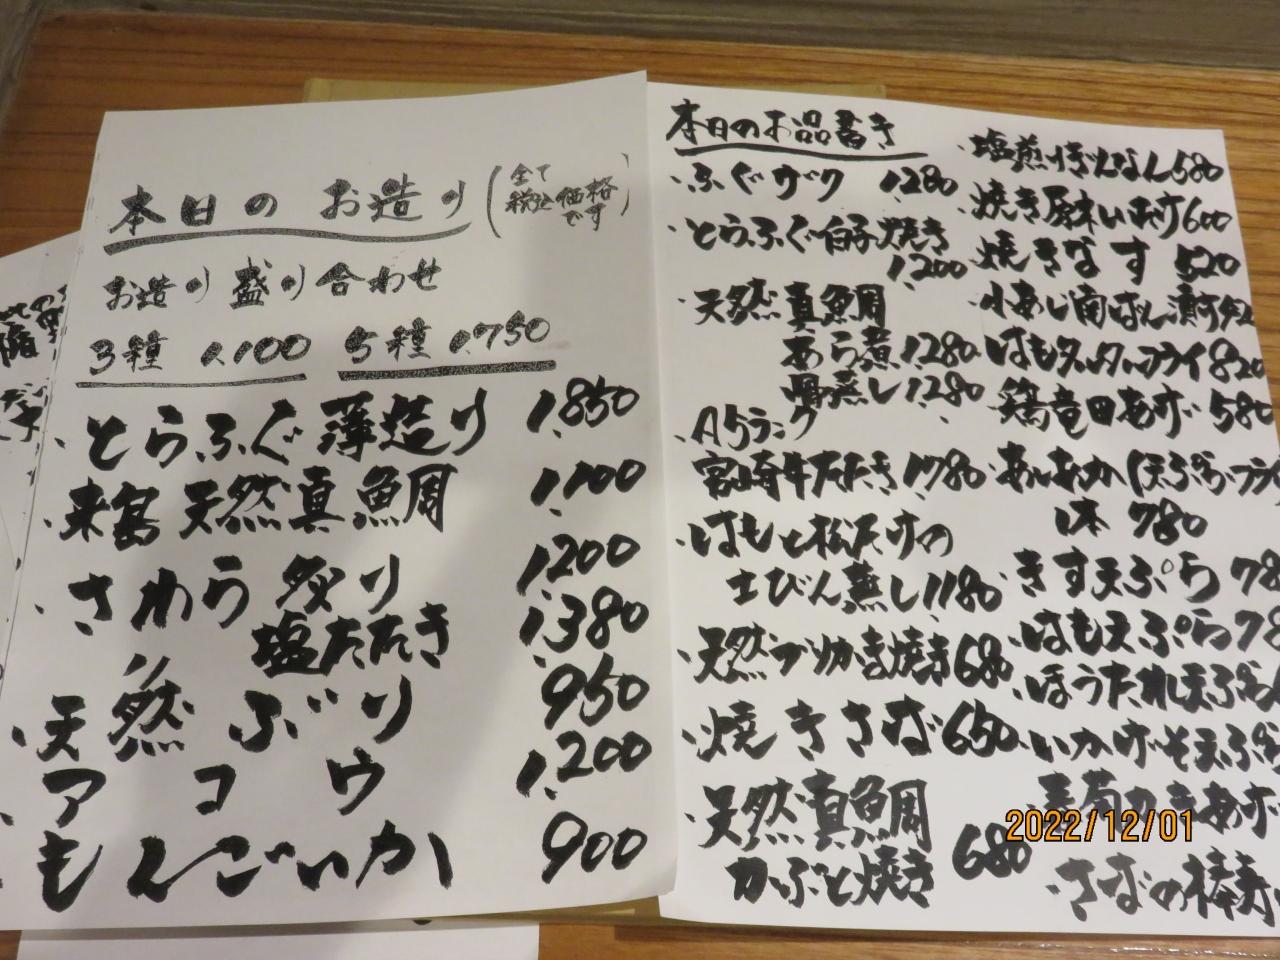 本日のお造り
(全て
税込価格
です)
お造り盛り合わせ
3種 1,100 5種 1,750
・とらふぐ薄造り 1,850
・来島天然真鯛 1,100
・さわら炙り 1,200
〃 塩たたき 1,380
・天然ぶり 950
・アコウ 1,200
・もんごいか 900
本日のお品書き
・ふぐザク 1,280
・とらふぐ白子焼き
1,200
・天然真鯛
あら煮 1,280
骨蒸し 1,280
・A5ランク
宮崎牛たたき 1,780
・はもと松たけの
土びん蒸し 1,180
・天然ブリかま焼き 680
・焼きさば 650
・天然真鯛
かぶと焼き 680
・塩煎りぎんなん 580
・焼き厚本しいたけ 600
・焼きなす 520
・小あじ南ばん漬け
・はもタツタフライ 820
・鶏竜田あげ 580
1本 780
・きす天ぷら 78
・はも天ぷら 78
・ほうたれ天ぷら
・いかげそ天ぷら
・春菊かきあげ
・さばの棒寿
2022/12/01